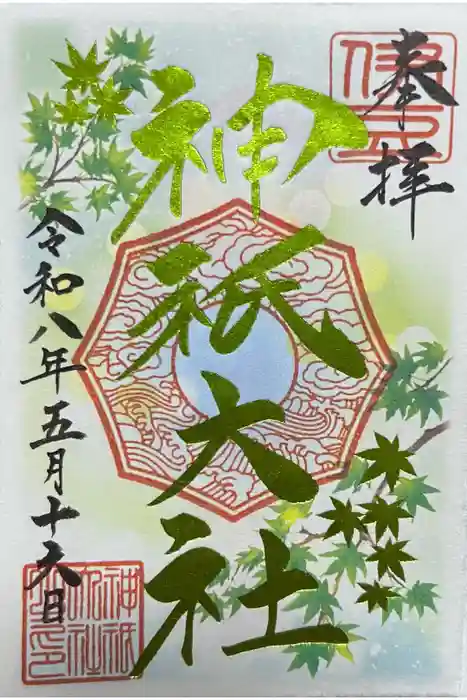 奉拝
伊豆
神祇大社
令和八年五月十六日
神祇